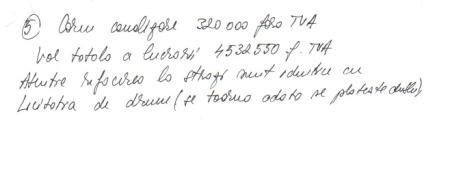 ⑤ Cămin canalizare 320 000 fără TVA
Val totală a lucrării 4532550 f. TVA
Atentie refacerea la străzi sunt identice cu
Licitatia de drum (se toarnă odată se plateste dublu)